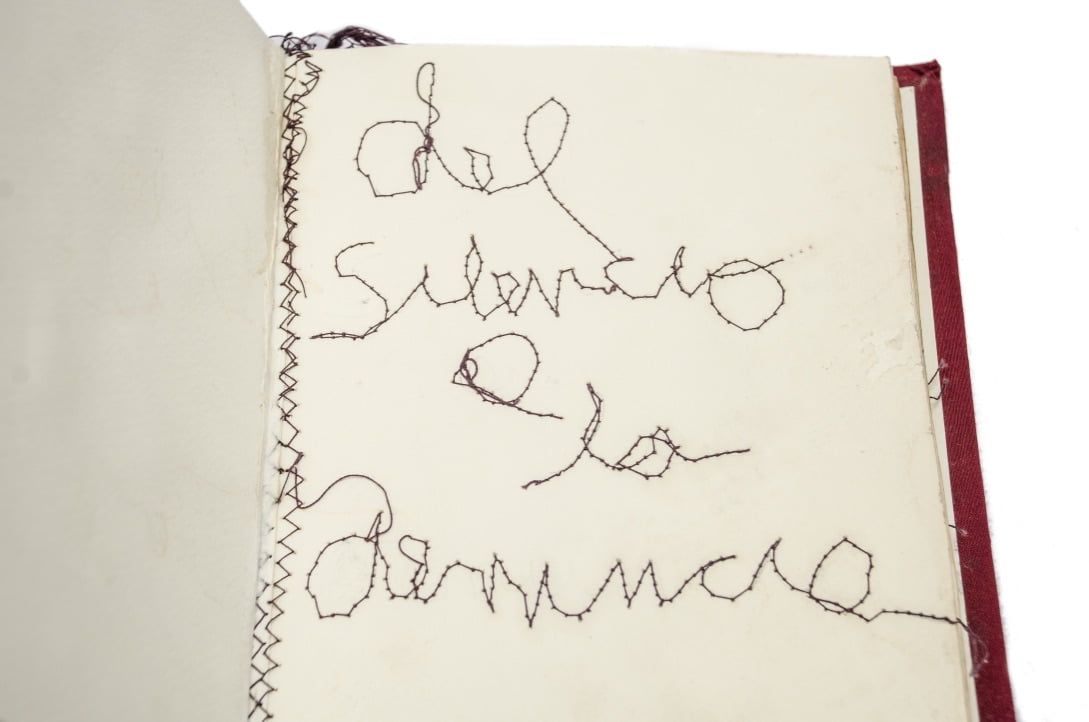 del
silencio
a la
denuncia